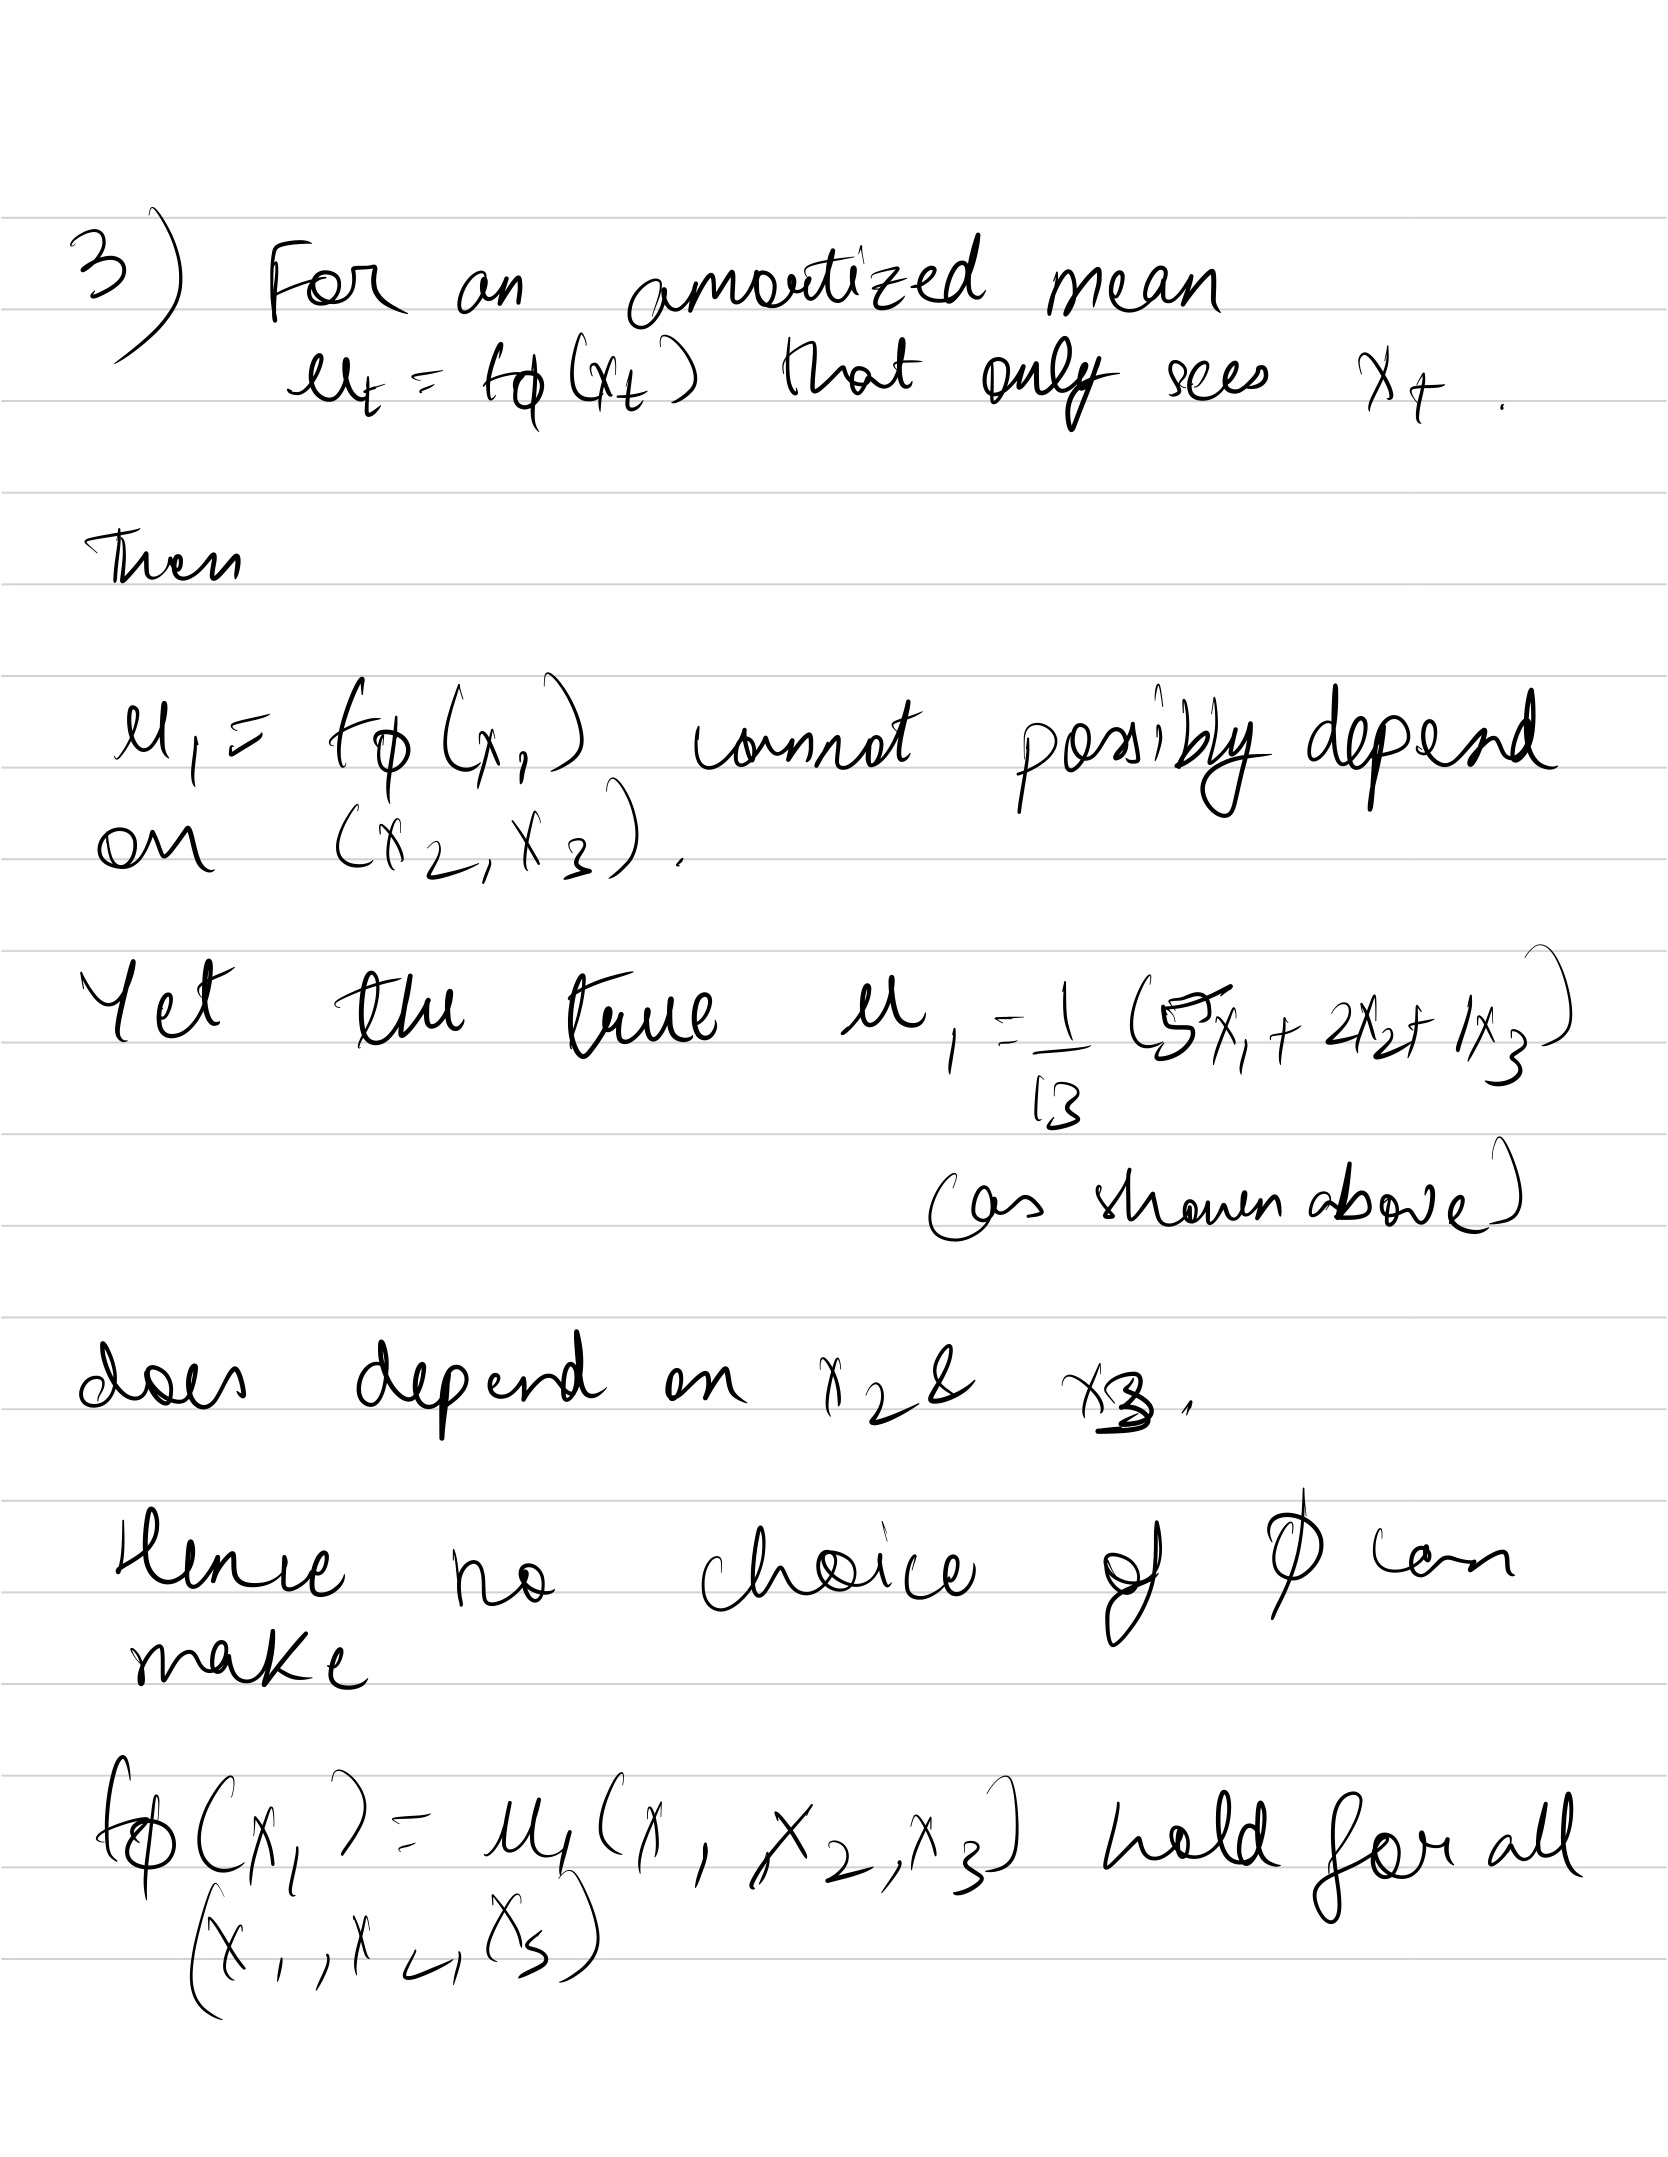 3) For an amortized mean
μₜ = fϕ(xₜ) that only sees xₜ.
Then
μ₁ = fϕ(x₁) cannot possibly depend
on (x₂, x₃).
Yet the true μ₁ = 1/13 (5x₁ + 2x₂ + 1x₃)
(as shown above)
does depend on x₂ & x₃.
Hence no choice of ϕ can
make
fϕ(x₁) = μ₁(x₁, x₂, x₃) hold for all
(x₁, x₂, x₃)